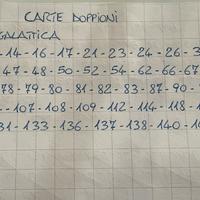 CARTE DOPPIONI
GALATTICA
- 14 - 16 - 17 - 21 - 23 - 24 - 26 - 3
- 47 - 48 - 50 - 52 - 54 - 62 - 66 - 67
78 - 79 - 80 - 81 - 82 - 83 - 87 - 90 -
- 107 - 108 - 109 - 112 - 114 - 118 - 1
31 - 133 - 136 - 137 - 138 - 140 - 1